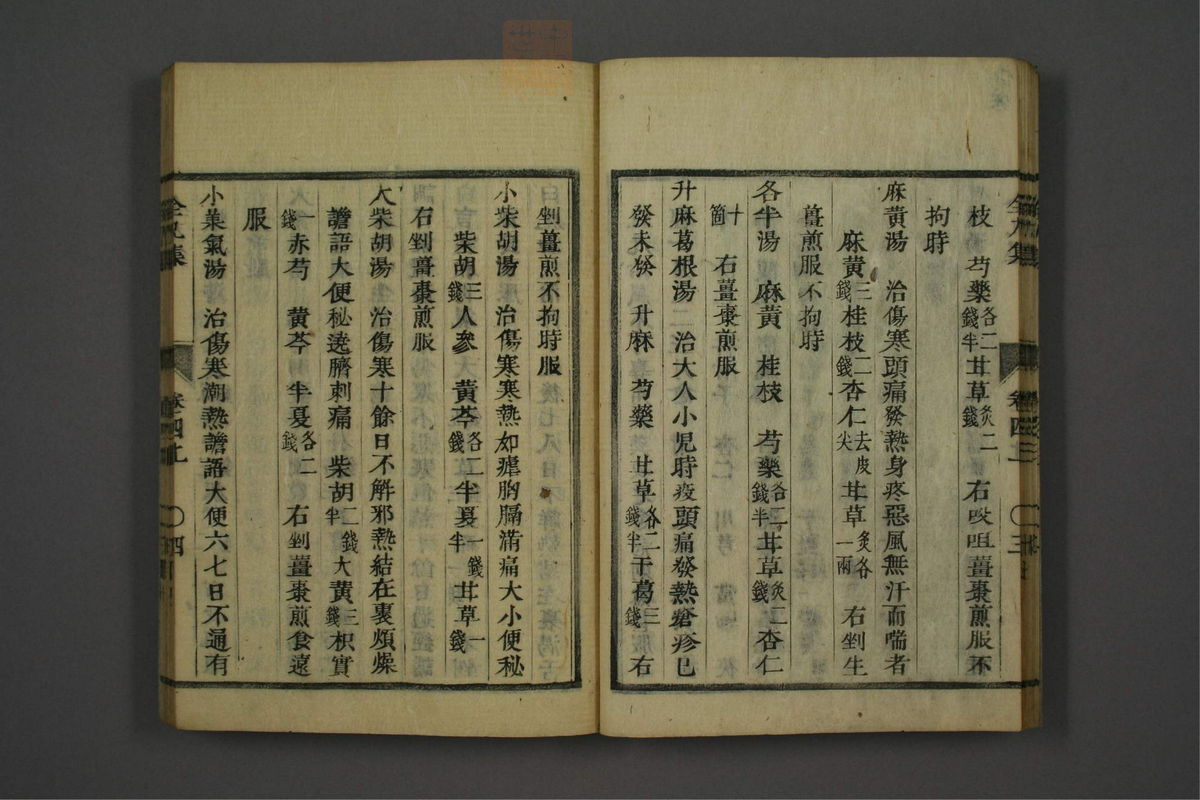 枝　芍藥各二錢半　甘草炙二錢　右㕮咀薑棗煎服不
拘時
麻黄湯　治傷寒頭痛發熱身疼惡風無汗而喘者
麻黄三錢桂枝二錢杏仁去皮尖甘草炙各一兩　右剉生
薑煎服不拘時
各半湯　麻黄　桂枝　芍藥各二錢半甘草炙二錢杏仁
十箇　右薑棗煎服
升麻葛根湯二　治大人小児時疫頭痛發熱瘡疹已
發未發　升麻　芍藥　甘草各二錢半干葛三錢　右
全九集　卷四　三
剉薑煎不拘時服
小柴胡湯　治傷寒寒熱如瘧胸膈滿痛大小便秘
柴胡三錢人參　黄芩各二錢半夏一錢半　甘草一錢
右剉薑棗煎服
大柴胡湯　治傷寒十餘日不解邪熱結在裏煩燥
譫語大便秘遶臍刺痛　柴胡二錢半大黄三錢枳實
一錢赤芍　黄芩　半夏各二錢　右剉薑棗煎食遠
服
小菓氣湯　治傷寒潮熱譫語大便六七日不通有
全九集　卷四上　四